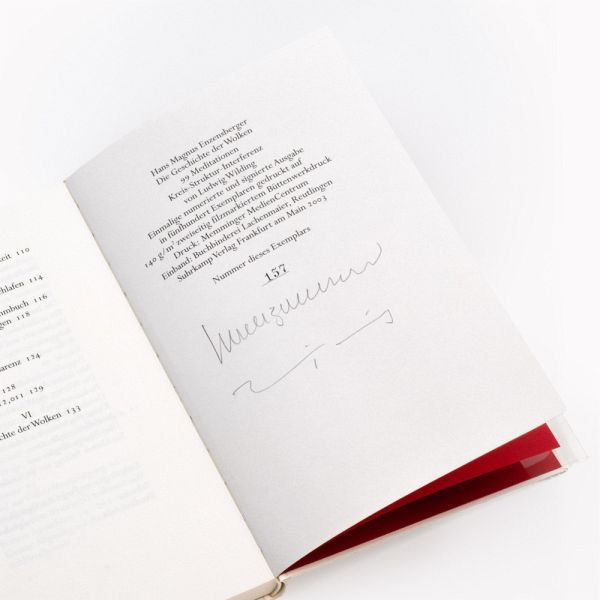 keit 110
chlafen 114
mmbuch 116
gen 118
arenz 124
128
2,011 129
VI
chichte der Wolken 133
Hans Magnus Enzensberger
Die Geschichte der Wolken
99 Meditationen
Kreis-Struktur-Interferenz
von Ludwig Wilding
Einmalige numerierte und signierte Ausgabe
in fünfhundert Exemplaren gedruckt auf
140 g/m² zweiseitig filzmarkiertem Büttenwerkdruck
Druck: Memminger MedienCentrum
Einband: Buchbinderei Lachenmaier, Reutlingen
Suhrkamp Verlag Frankfurt am Main 2003
Nummer dieses Exemplars
157